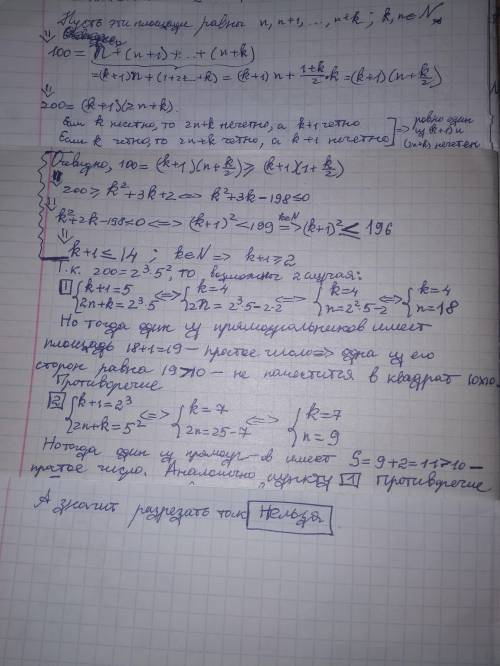 Пусть эти площади равны n, n+1, ..., n+k; k, n∈N
⇓
100 = n+(n+1)+...+(n+k)
=(k+1)n+(1+2+...+k)=(k+1)n+\frac{1+k}{2}·k=(k+1)(n+\frac{k}{2})
⇓
200=(k+1)(2n+k).
Если k нечетно, то 2n+k нечетно, а k+1 четно
Если k четно, то 2n+k четно, а k+1 нечетно ] ⇒ ровно один из (k+1) и (2n+k) нечетен
Очевидно, 100=(k+1)(n+\frac{k}{2})≥(k+1)(1+\frac{k}{2})
⇓
200≥k²+3k+2 ⇔ k²+3k-198≤0
⇓
k²+2k-198≤0 ⇔ (k+1)²≤199 ⇒ (k+1)²≤196
k∈N
⇓
k+1≤14; k∈N ⇒ k+1≥2
Т.к. 200=2³·5², то возможны 2 случая:
1 { k+1=5 2n+k=2³·5 ⇔ { k=4 2n=2³·5-2·2 ⇔ { k=4 n=2²·5-2 ⇔ { k=4 n=18
Но тогда один из прямоугольников имеет
площадь 18+1=19 – простое число ⇒ одна из его
сторон равна 19>10 – не поместится в квадрат 10x10.
Противоречие
2 { k+1=2³ 2n+k=5² ⇔ { k=7 2n=25-7 ⇔ { k=7 n=9
Но тогда один из прямоуг-в имеет S=9+2=11>10 –
простое число. Аналогично пункту 1 противоречие
А значит разрезать так Нельзя.